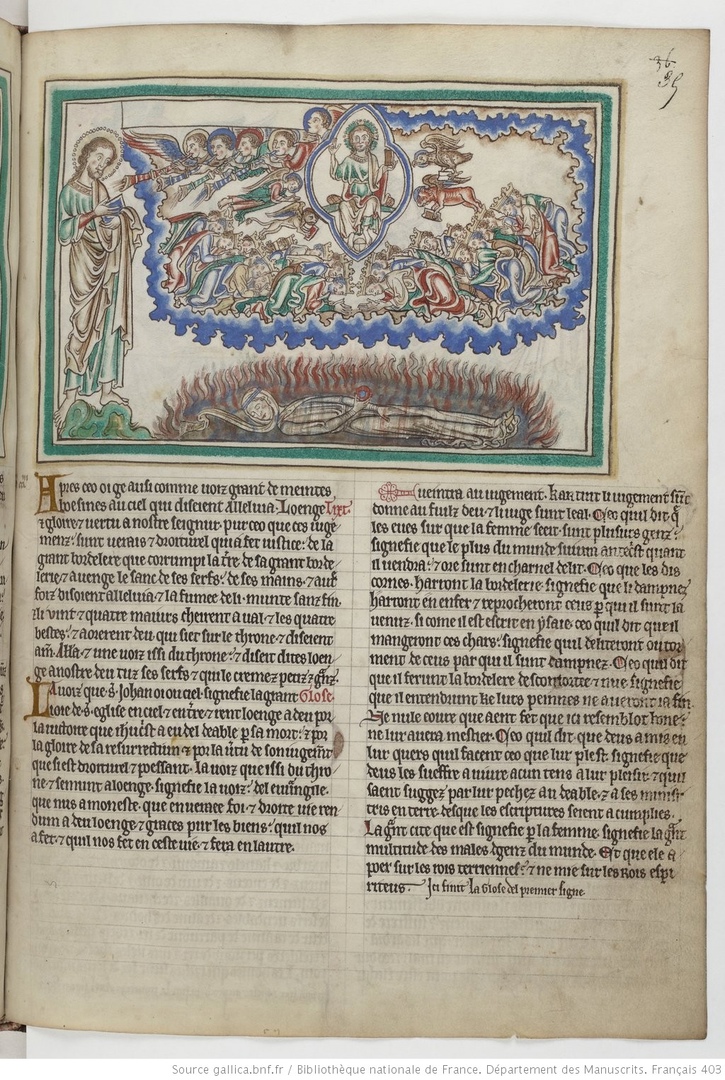 36.
35
Apres ceo oi ge ausi comme uoiz grant de meintes
boesines au ciel qui disoient alleluia. Loenge Tixt.
⁊ gloire ⁊ uertu a nostre seignur. pur ceo que ces iuge
menz. sunt uerais ⁊ droiturel qui a fet iustice. de la
grant bordelere que corrumpi la tre de sa grant borde
lerie. ⁊ auenge le sanc de ses serfs. de ses mains. ⁊ aut
foiz disoient alleluia. ⁊ la fumee de li. munte sanz fin.
⁊ li uint ⁊ quatre maiurs cheirent a ual. ⁊ les quatre
bestes. ⁊ aorerent deu qui siet sur le throne. ⁊ diseient
am. Alla. ⁊ une uoiz issi du throne. ⁊ disoit dites loen
ge a nostre deu tuz ses serfs ⁊ qui le cremez petiz ⁊ gnz.
La uoiz que s. Johan oi ou ciel. signefie la grant Glose.
ioie de s. eglise en ciel ⁊ en tre. ⁊ rent loenge a deu por
la uictoire que ihu crist a eu del deable p sa mort. ⁊ por
la gloire de sa resurrectiun ⁊ por la uertu de son iugemt
que si est droiturel ⁊ poessant. La uoiz que issi du thro
ne ⁊ semunt a loenge. signefie la uoiz. del euuangile.
que nus amoneste. que en ueraee foi. ⁊ droite uie ren
dum a deu loenge ⁊ graces pur les biens. quil nos
a fet. ⁊ quil nos fet en ceste uie. ⁊ fera en lautre.
quil uendra au iugement. kar tut li iugement sunt
donne au fuilz deu. ⁊ li iuge sunt leal. E ceo quil dit. q
les eues sur que la femme seit. sunt plusurs genz.
signefie que le plus du munde suiura antecst quant
il uendra. ⁊ ore sunt en charnel delit. E ceo que les dis
cornes. harront la bordelerie. signefie que li dampnez
harront en enfer ⁊ reprocheront ceus p qui il sunt la
uenuz. si come il est escrit en ysaie. ceo quil dit que il
mangeront ces chars. signefie quil deliteront ou tor
ment de ceus par qui il sunt dampnez. E ceo quil dit
que il ferunt la bordelere desconfortee ⁊ nue. signefie
que il entendrunt ke lurs peinnes ne aueront ia fin.
Ne nule couerture
ne lur auera mester. E ceo quil dit. que deus a mis en
lur quers quil facent ceo que lur plest. signefie que
deus les sueffre a uiure acun tens a lur plesir. ⁊ quil
saent suggez par lur pechez au deable. ⁊ a ses minis
tris en terre. desque les escriptures seient acumplies.
La gnt cite que est signefie p la femme. signefie la gnt
multitude des males genz du munde. E st que ele a
poer sur les rois terriennes. ⁊ ne mie sur les Rois espi
riteus. Ici finit la Glose del premier signe
Source gallica.bnf.fr / Bibliothèque nationale de France. Département des Manuscrits. Français 403